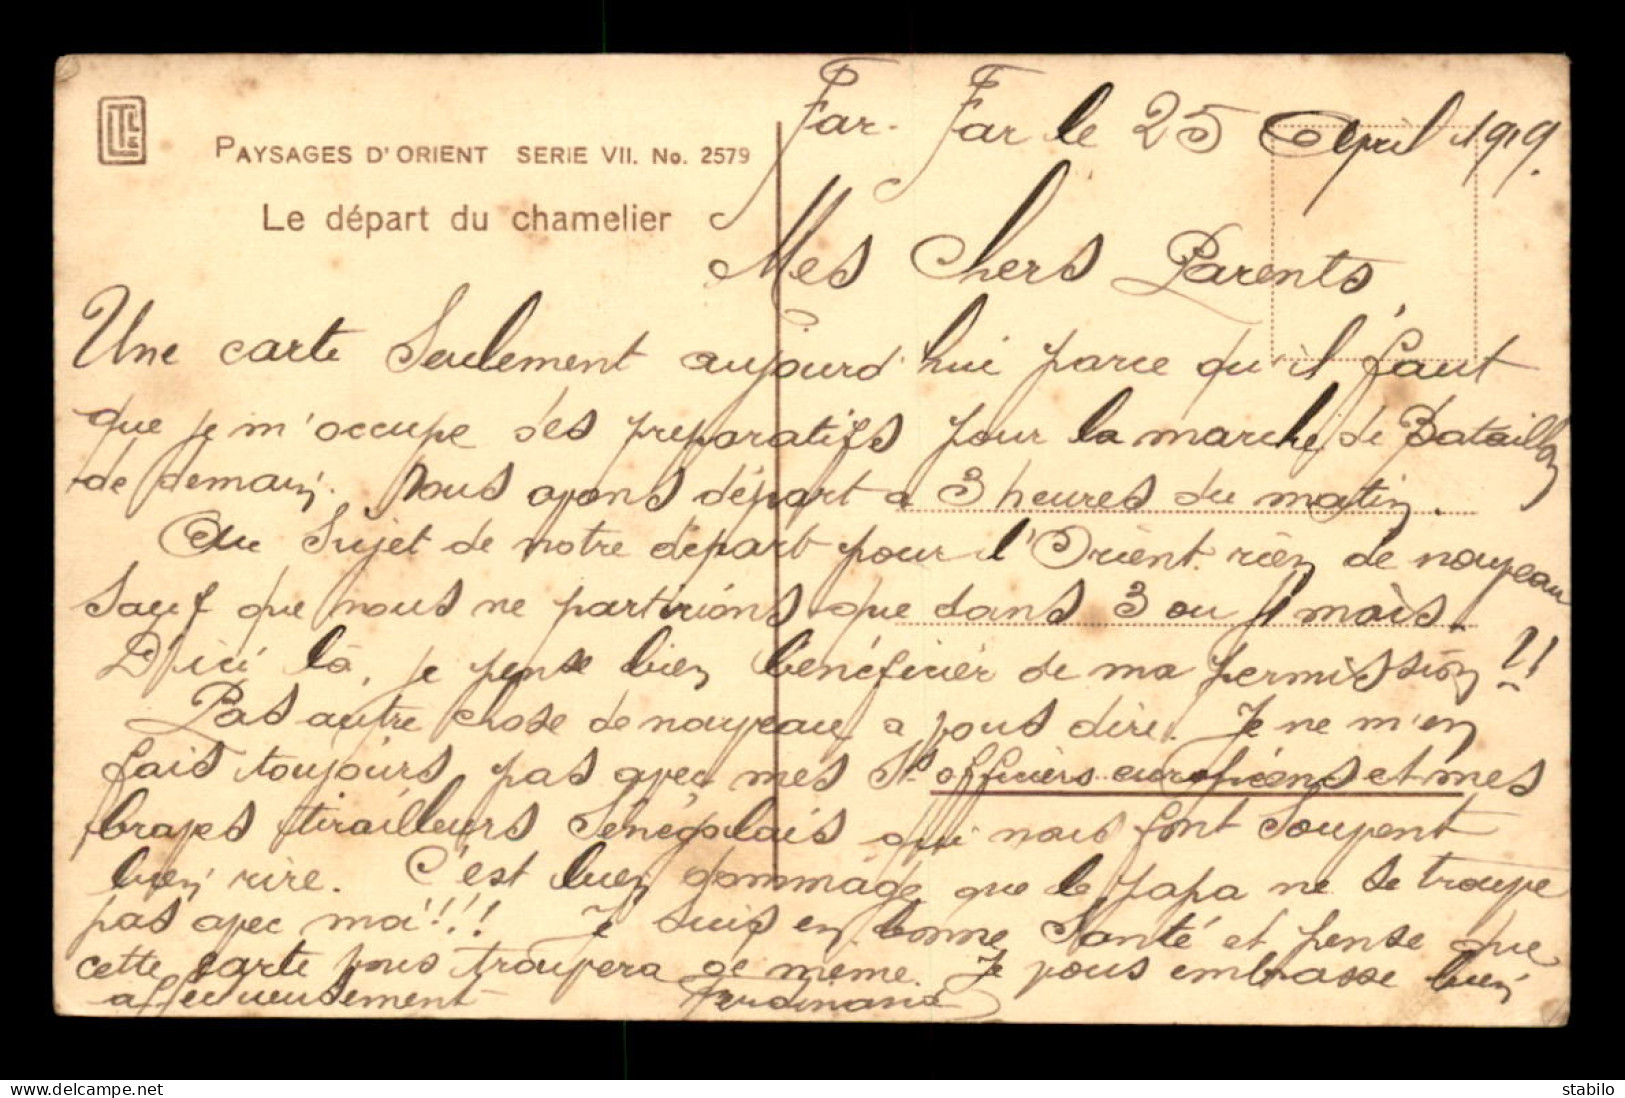 Far-Far le 25 April 1919.
PAYSAGES D'ORIENT SERIE VII. No. 2579
Le départ du chamelier
Mes Chers Parents,
Une carte Seulement aujourd'hui parce qu'il faut
que je m'occupe des préparatifs pour la marche de Bataillon
de demain. Nous avons départ a 3 heures du matin.
Au Sujet de notre départ pour l'Orient rien de nouveau
Sauf que nous ne partirions que dans 3 ou 4 mois.
D'ici là, je pense bien bénéficier de ma permission!!
Pas autre chose de nouveau a vous dire. Je ne m'en
fais toujours pas avec mes Ss officiers européens et mes
braves tirailleurs Sénégalais qui nous font Souvent
bien rire. C'est bien dommage que le papa ne se trouve
pas avec moi!!! Je Suis en bonne Santé et pense que
cette carte vous trouvera de même. Je vous embrasse bien
affectueusement Ferdinand
delcampe.net
stabilo